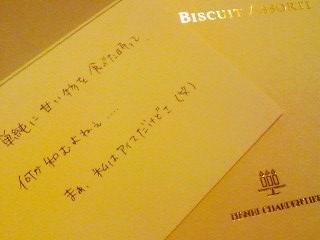 BISCUIT ASSORTI
単純に甘い物を食べた時って
何か和むよねぇ....
まぁ、私はアイスだけどさ(笑)
HENRI CHARPENTIER